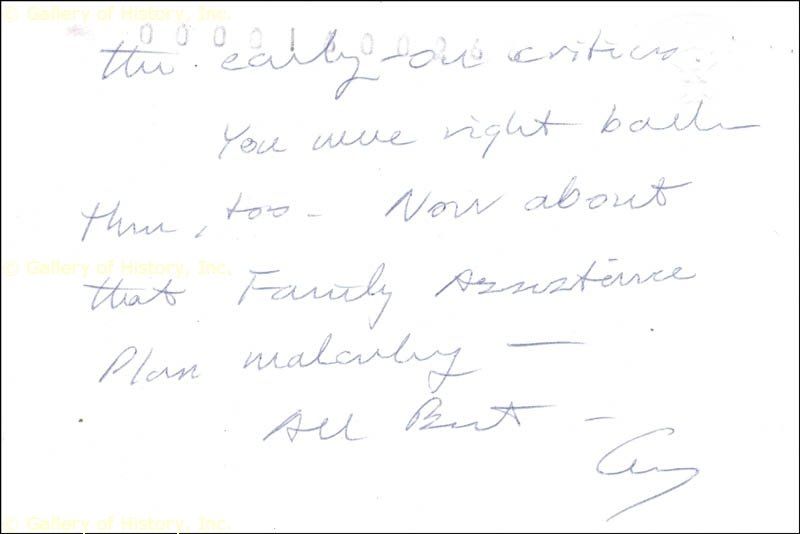 © Gallery of History, Inc.
0000110026
the early-on critics
You were right back
then, too - Now about
that Family Assistance
Plan malarkey —
All Best -
© Gallery of History, Inc.
© Gallery of History, Inc.